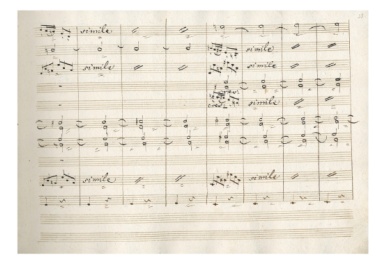 simile
simile
simile simile
simile
simile simile